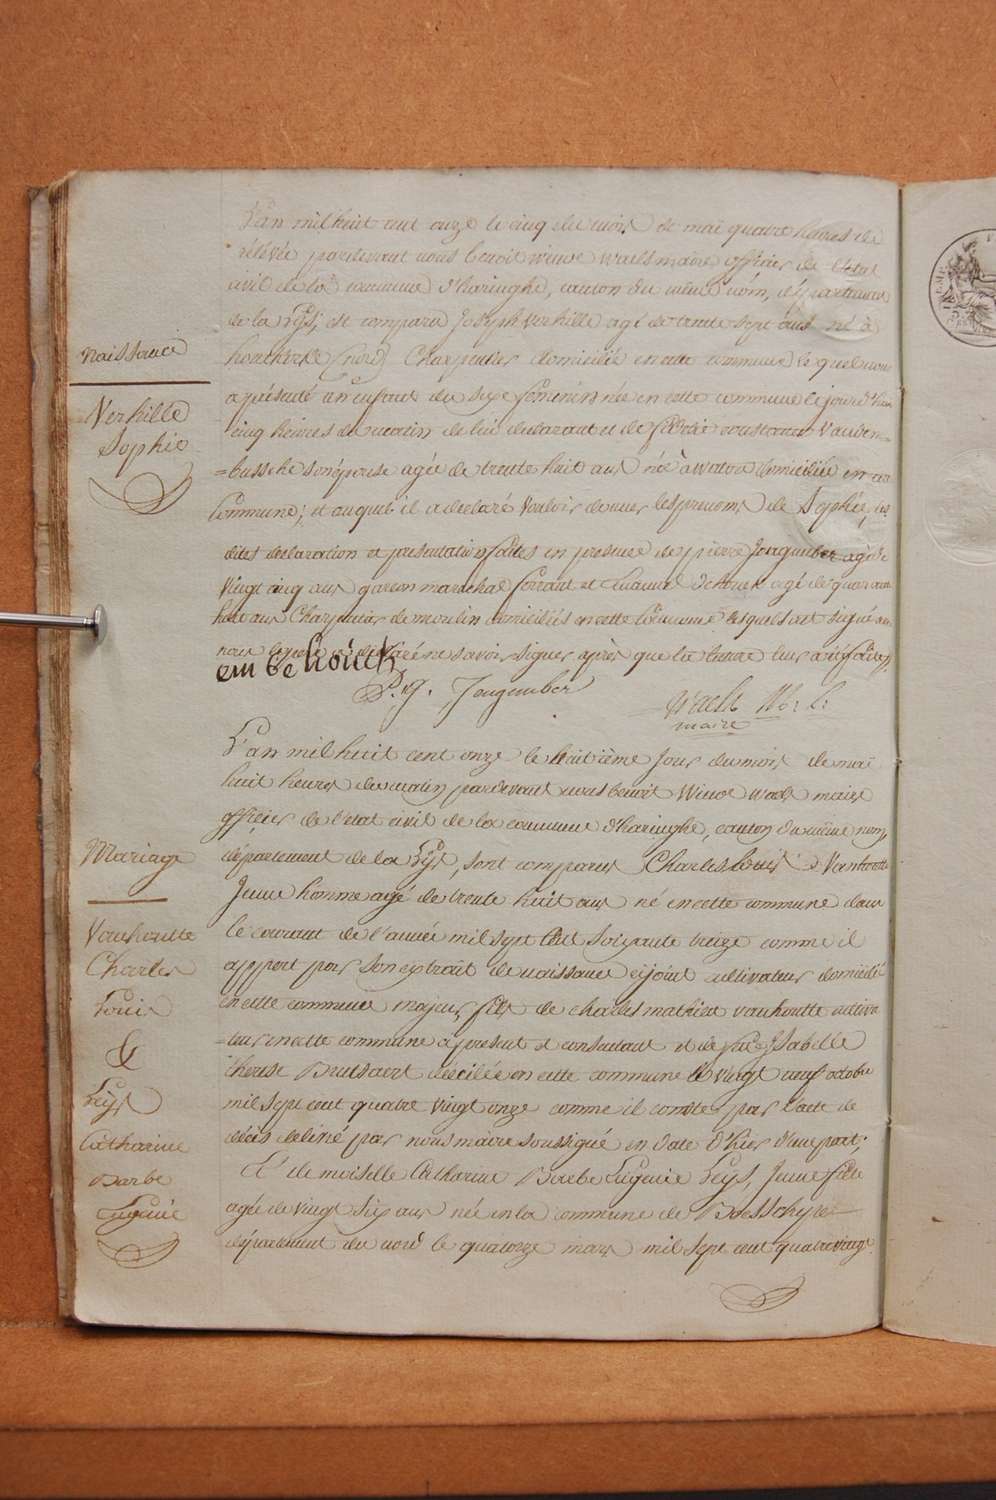 L'an mil huit cent onze le cinq du mois de mai quatre heures de
relevée pardevant nous benoit winoc waels maire officier de l'état
civil de la commune d'haringhe, canton du même nom, département
de la Lys, est comparu Joseph Verhille agé de trente sept ans né à
houtkerke (nord) Charpentier domicilié en cette commune le quel nous
a présenté un enfant du sexe féminin née en cette commune le jour d'hier
cinq heures du matin de lui declarant et de constance Vanden=
=bussche son épouse agée de trente huit ans née à watou domiciliée en cette
Commune; et auquel il a déclaré vouloir donner les prenoms de Sophie, les
dites declaration et présentation faites en presence de pierre Jongember agé de
vingt cinq ans garcon marechal ferrant et agé de quarante
huit ans Charpentier de moulin domiciliés en cette commune lesquels ont signé avec
nous declaré ne savoir signer après que la lecture leur a été faite,
P. J. Jongember
Waels
maire
naissance
Verhille
Sophie
L'an mil huit cent onze le huitième Jour du mois de mai
huit heures du matin pardevant nous benoit Winoc waels maire
officier de l'etat civil de la commune d'haringhe, canton du même nom,
département de la Lys, sont comparus Charles Louis Vanhoutte
Jeune homme agé de trente huit ans né en cette commune dans
le courant de l'année mil sept cent soixante treize comme il
apport par son extrait de naissance cijoint cultivateur domicilié
en cette commune majeur, fils de charles mathieu vanhoutte cultiva
=teur en cette commune à present et consentant et de Isabelle
therese Brutsaert décédée en cette commune le vingt neuf octobre
mil sept cent quatre vingt onze comme il conste par l'acte de
décès delivré par nous maire soussigné en date d'hier d'une part;
Et demoiselle Catharine Barbe Eugenie Leys, Jeune fille
agée de vingt six ans née en la commune de Boeschepe
département du nord le quatorze mars mil sept cent quatre vingt
Mariage
Vanhoutte
Charles
Louis
&
Leys
Catharine
Barbe
Eugenie